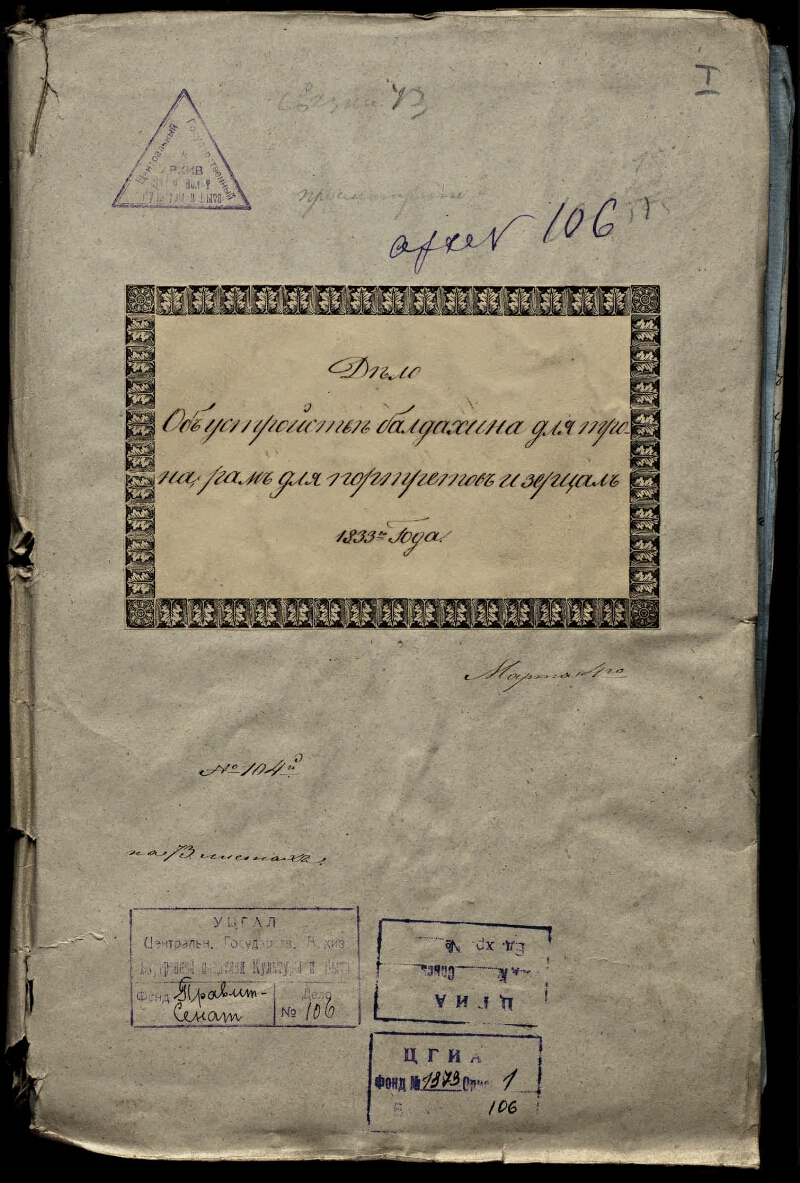 I
Связка 73
Центральный Государственный
АРХИВ
архив 106
Дѣло
Объ устройствѣ балдахина для тро-
на, рамъ для портретовъ и зерцалъ
1833го Года.
Марта 4го
№ 104й
на 73 листахъ.
УЦГАЛ
Центральн. Государств. Архив
Внутренней политики Культуры и Быта
Фонд Правит-
Сенат
Дело
№ 106
ЦГИА
Фонд № Опись
Ед. хр. №
ЦГИА
Фонд № 1373 Опись 1
106